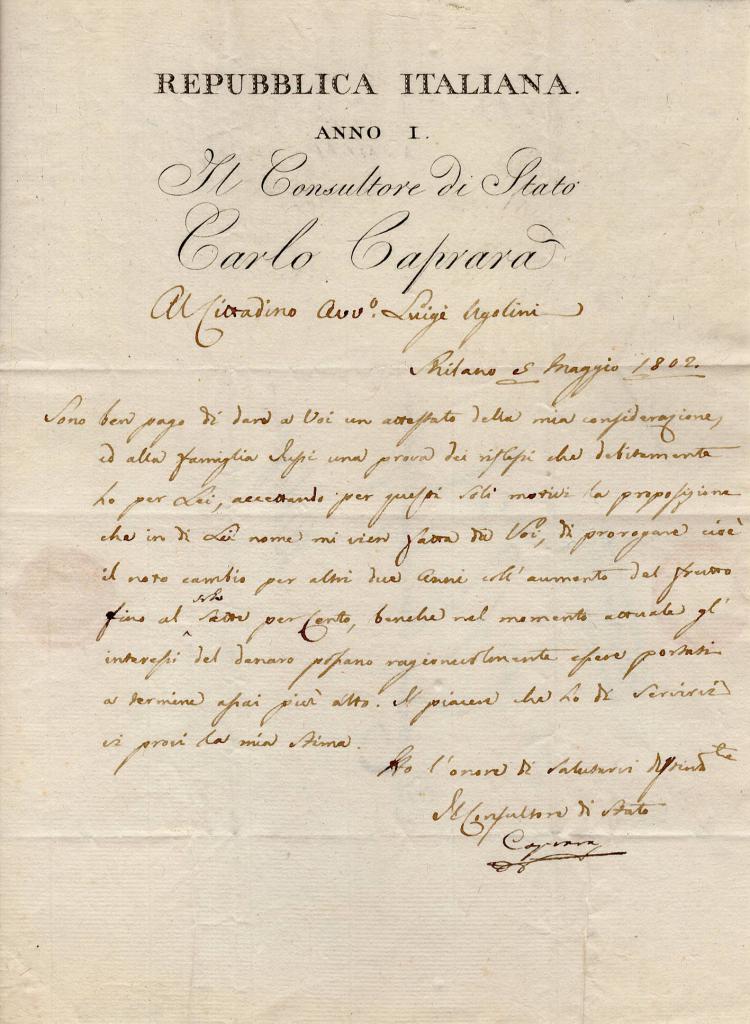 REPUBBLICA ITALIANA.
ANNO I.
Il Consultore di Stato
Carlo Caprara
Al Cittadino Avv.o Luigi Ugolini
Milano 5 Maggio 1802.
Sono ben pago di dare a Voi un attestato della mia considerazione,
ed alla famiglia una prova dei riflessi che debitamente
ho per Lei, accettando per questi soli motivi la proposizione
che in di Lei nome mi vien fatta da Voi, di prorogare cioè
il noto cambio per altri due Anni coll'aumento del frutto
solo
fino al sette per Cento, benche nel momento attuale gl'
interessi del denaro possano ragionevolmente essere portati
a termine assai più alto. Il piacere che ho di servirvi
vi provi la mia stima.
Ho l'onore di salutarvi distint.te
Il Consultore di Stato
Caprara